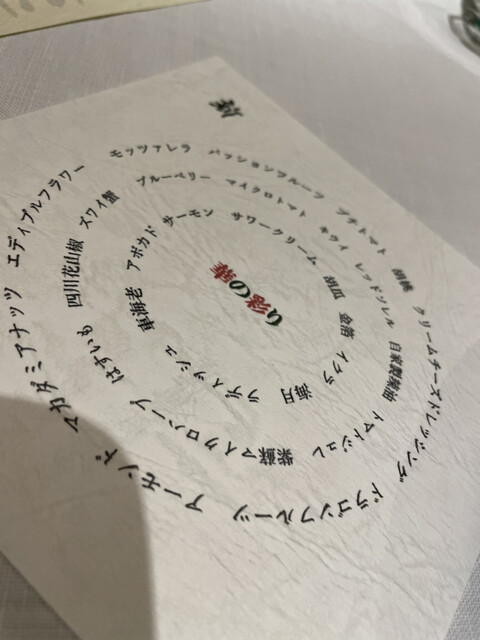 モッツァレラ
パッションフルーツ
プチトマト
胡桃
クリームチーズドレッシング
ドラゴンフルーツ
アーモンド
マカダミアナッツ
エディブルフラワー
ブルーベリー
マイクロトマト
キウイ
レッドソレル
自家製辣油
トマトジュレ
紫蘇
マイクロハーブ
はすいも
四川花山椒
ズワイ蟹
サーモン
サワークリーム
胡瓜
金箔
イクラ
海月
ラディッシュ
車海老
アボカド